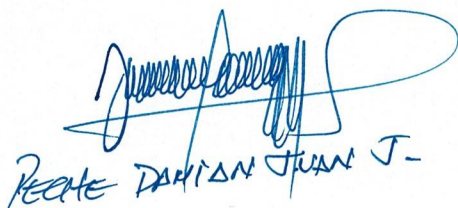 PECHE DAMIAN JUAN J-